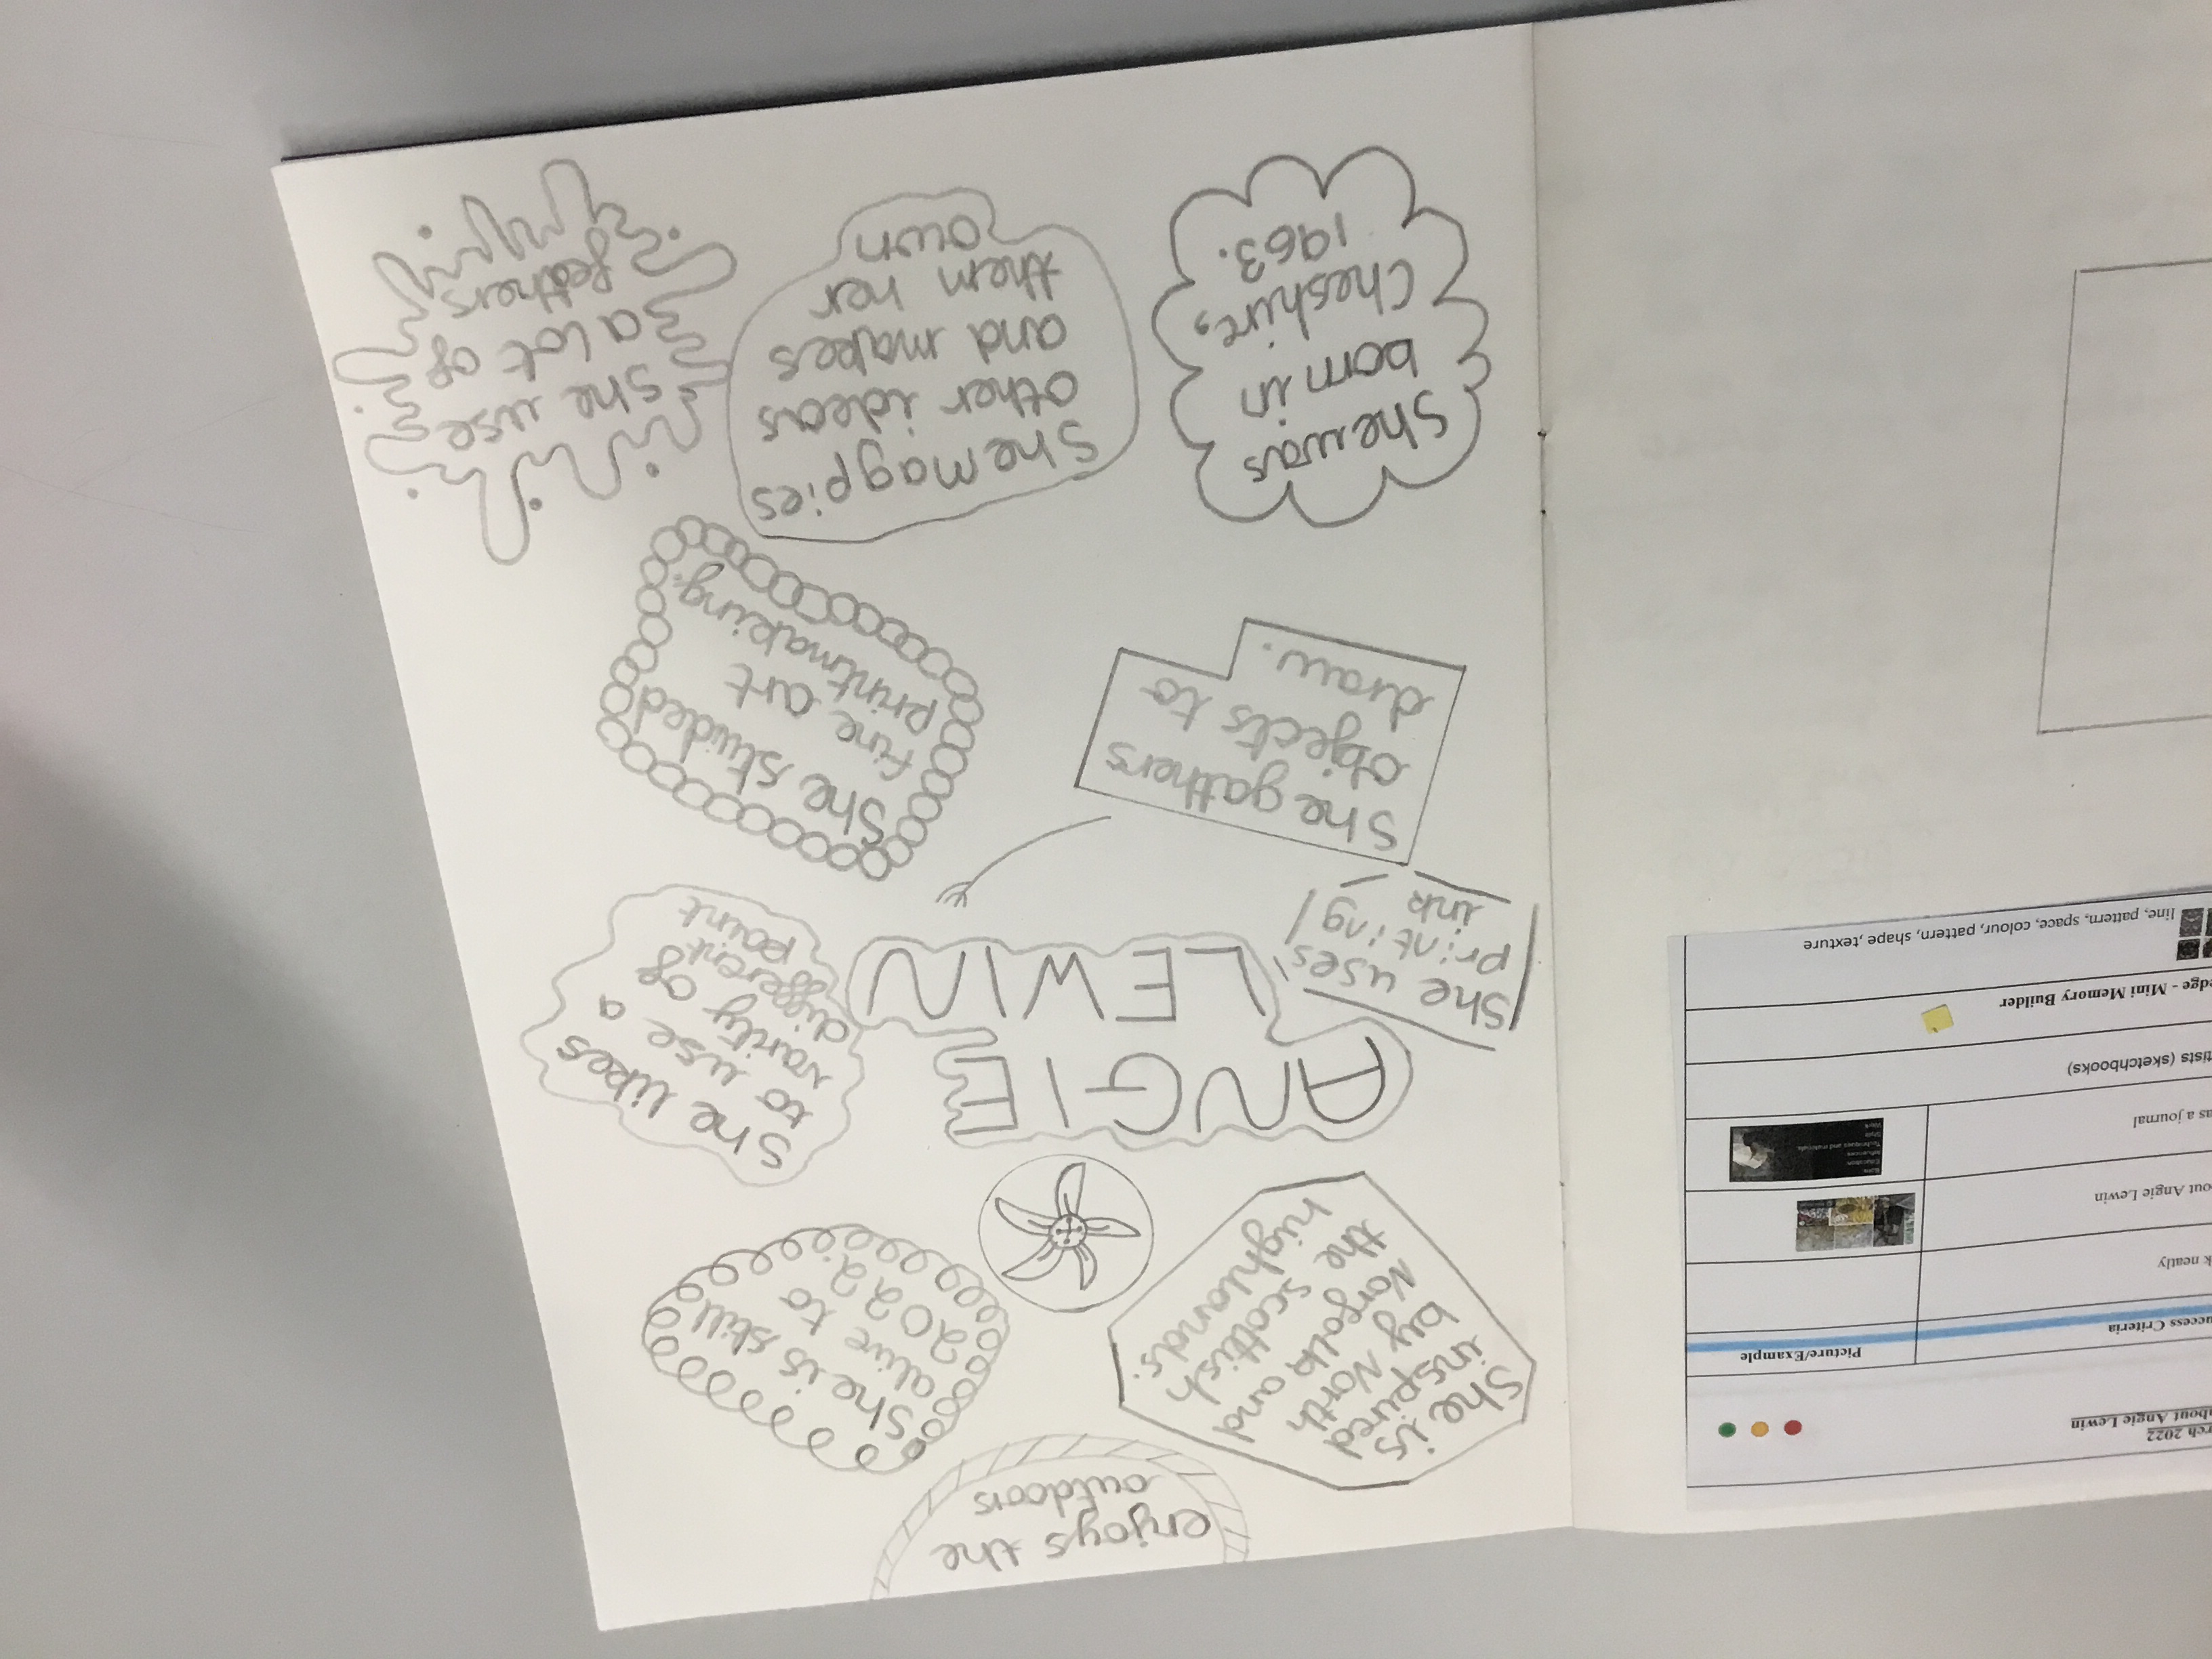 rch 2022
about Angie Lewin
uccess Criteria
Picture/Example
k neatly
out Angie Lewin
as a journal
tists (sketchbooks)
edge - Mini Memory Builder
line, pattern, space, colour, pattern, shape ,texture
enjoys the
outdoors
She is
inspired
by North
Norfolk and
the scottish
highlands
She is still
alive to
2022
ANGIE
LEWIN
She likes
to use a
varity of
different
paint
She uses
printing
ink
She gathers
objects to
draw.
She studed
fine art
printmaking.
She was
born in
Cheshire,
1963.
She magpies
other ideas
and makes
them her
own
She use
a lot of
feathers